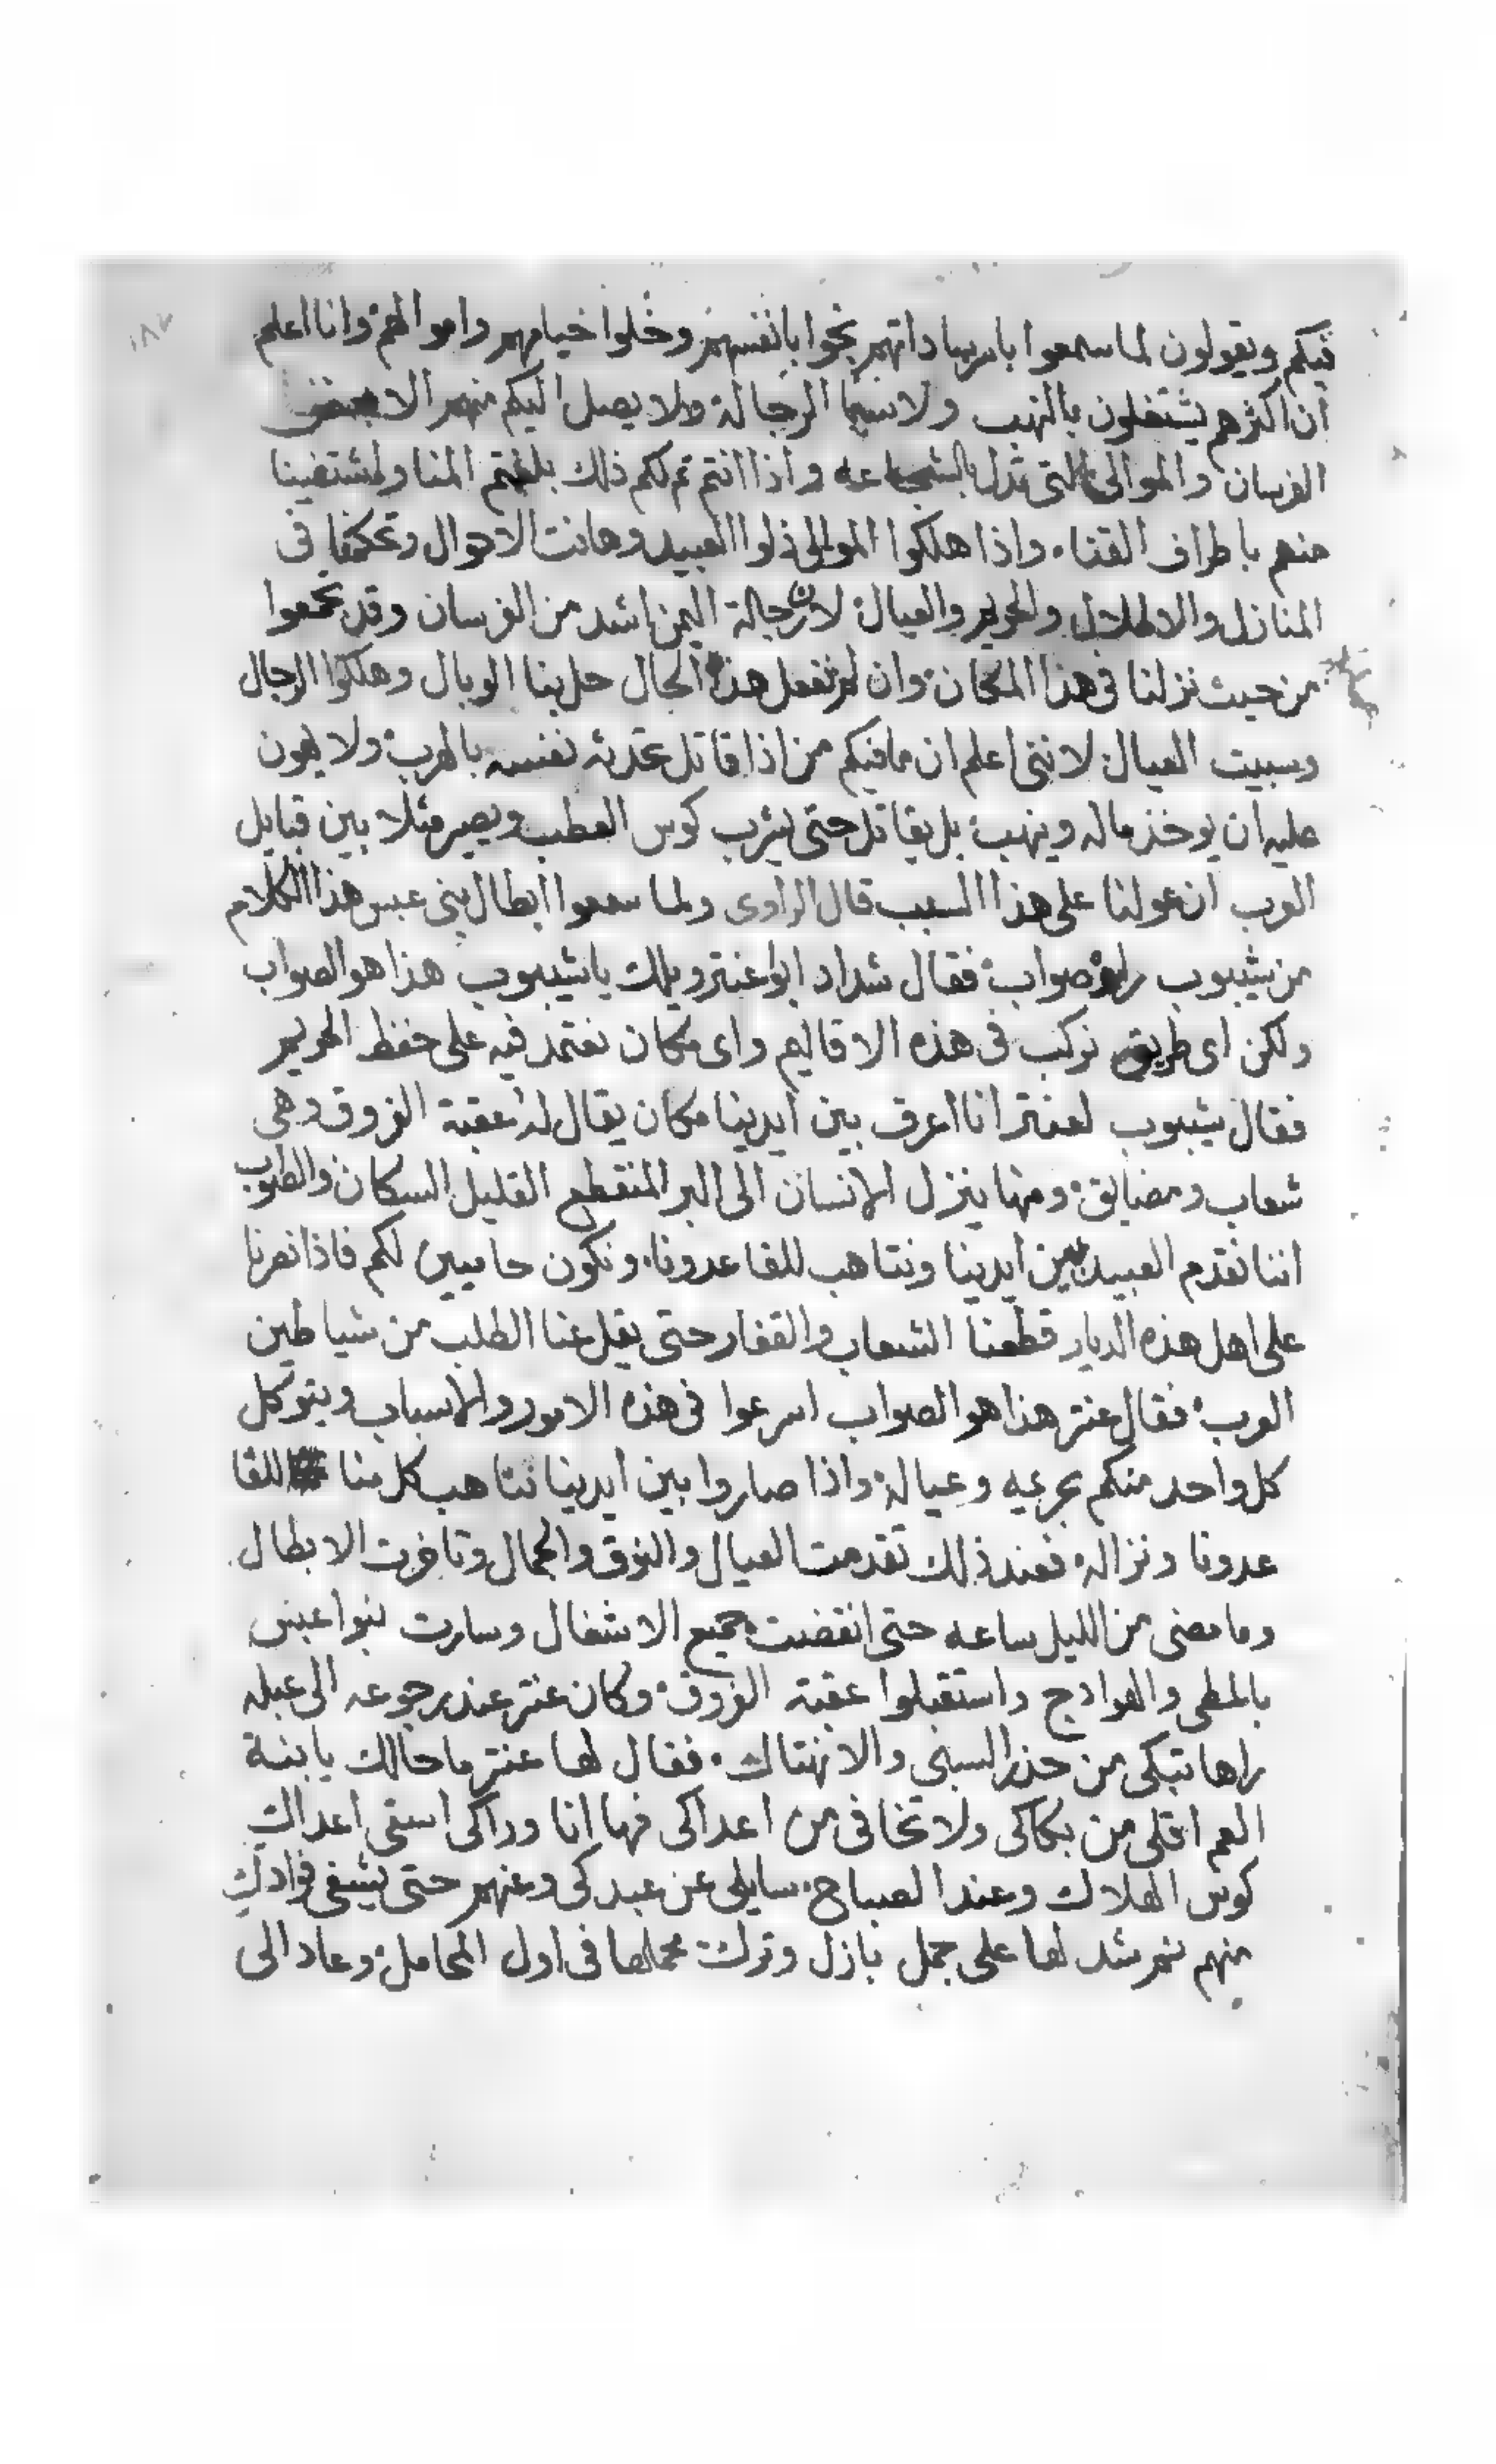 ١٨٧
فيكم ويقولون لما سمعوا باسر ساداتهم نجوا بانفسهم وخلوا خيامهم واموالهم وانا اعلم
ان اكثرهم يشتغلون بالنهب ولا سيما الرجالة ولا يصل اليكم منهم الا بعض
الفرسان والموالى التى تدل بالشجاعه واذا انتم تم لكم ذلك بلغتم المنا واشتفينا
منهم باطراف القنا، واذا هلكوا الموالى ذلوا العبيد وهانت الاحوال وتحكمنا فى
المنازل والاطلال والحريم والعيال لان رجالة اليمن اشد من الفرسان وقد تجمعوا
من حيث نزلنا فى هذا المكان وان لم نفعل هذا الحال حل بنا الوبال وهلكوا الرجال
وسبيت العيال لاننى اعلم ان ما فيكم من اذا قاتل تحدثه نفسه بالهرب ولا يهون
عليه ان يوخذ ماله وينهب بل يقاتل حتى يشرب كوس العطب ويصير مثلا بين قبايل
العرب ان عولنا على هذا السبب قال الراوى ولما سمعوا ابطال بنى عبس هذا الكلام
من شيبوب راوه صواب فقال شداد ابوا عنتر ويلك يا شيبوب هذا هو الصواب
ولكن اى طريق نركب فى هذه الاقاليم واى مكان نعتمد فيه على حفظ الحريم
فقال شيبوب لعنتر انا اعرف بين ايدينا مكان يقال له عقبة الزروق وهى
شعاب ومضايق ومنها ينزل الانسان الى البر المنقطع القليل السكان والصواب
اننا نقدم العبيد بين ايدينا ونتاهب للقا عدونا، ونكون حاميين لكم فاذا نصرنا
على اهل هذه الديار قطعنا الشعاب والقفار حتى يقل عنا الطلب من شياطين
العرب فقال عنتر هذا هو الصواب اسرعوا فى هذه الامور والاسباب ويتوكل
كل واحد منكم بحريمه وعياله واذا صاروا بين ايدينا نتاهب كل منا للقا
عدونا ونزاله فعند ذلك تقدمت العيال والنوق والجمال وتاخرت الابطال
وما مضى من الليل ساعه حتى انقضت جميع الاشغال وسارت بنوا عبس
بالمطى والهوادج واستقبلوا عقبة الزروق وكان عنتر عند رجوعه الى عبله
راها تبكى من حذر السبى والانهتاك، فقال لها عنتر ما حالك يا بنة
العم اقلى من بكاكى ولا تخافى من اعداكى فها انا وراكى اسقى اعداك
كوس الهلاك وعند الصباح سايلى عن عبدكى وعنهم حتى يشفى فوادك
منهم ثم شد لها على جمل بازل وترك محملها فى اول المحامل وعاد الى